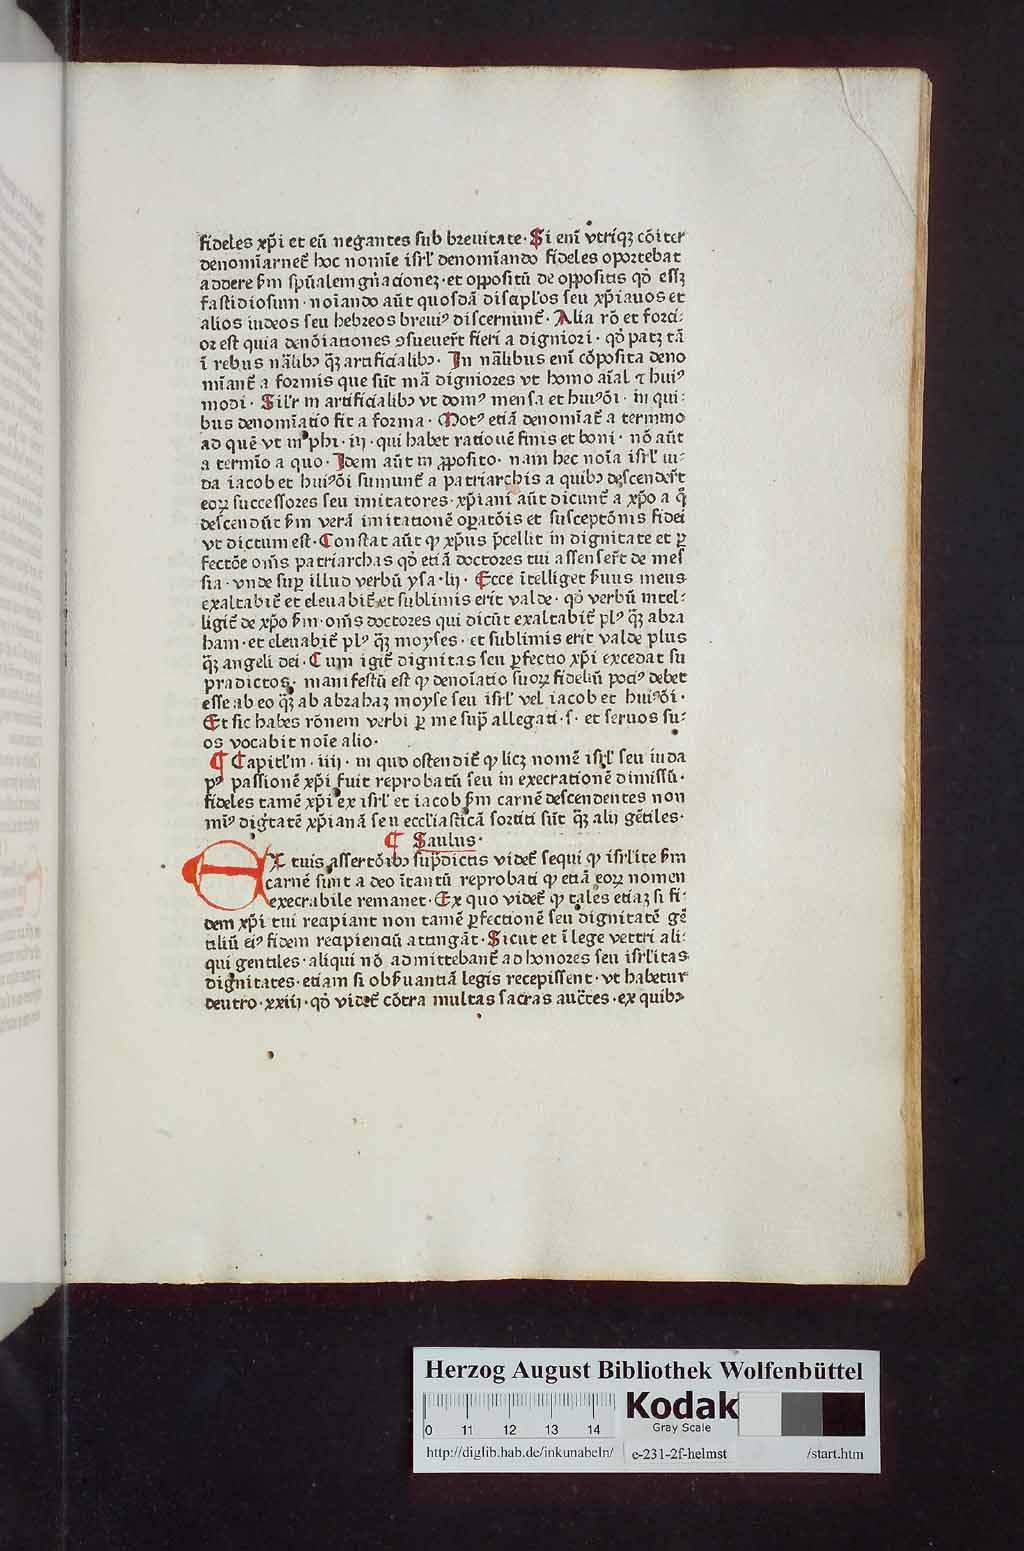 fideles xp̄i et eū negantes sub breuitate· Si enī vtriqꝫ cōiter
denomīarnet᷑ hoc nomīe isrl᷑ denomīando fideles oportebat
addere ẜm spūalem gn̄acionez·et oppositū de oppositis qd̓ essꝫ
fastidiosum·noīando aūt quosdā discipl᷑os seu xp̄iavos et
alios iudeos seu hebreos breuiꝰ discernunt᷑· Alia rō et forci-
or est quia denōiationes ꝯsueuer̄t fieri a digniori· qd̓ patꝫ tā
ī rebus nālibꝫ qꝫ̄ artificialibꝫ· In nālibus enī cōposita deno
mīant᷑ a formis que sūt mā digniores vt homo aīal ⁊ huiꝰ
modi· Sil᷑r in artificialibꝫ vt domꝰ mensa et huiꝰōi· in qui:
bus denomīatio fit a forma· Motꝰ etiā denomīat᷑ a termino
ad quē vt inꝰphi·iij·qui habet rationē finis et boni· nō aūt
a termīo a quo· Idem aūt in ꝓposito· nam hec noīa isrl᷑ iu-
da iacob et huiꝰōi sumunt᷑ a patriarchis a quibꝫ descender̄t
eoꝝ successores seu imitatores·xp̄iani aūt dicunt᷑ a xp̄o a q̄
descendūt ẜm verā imitationē oꝑatōis et susceptōnis fidei
vt dictum est·Constat aūt ꝙ xp̄us p̄cellit in dignitate et ꝑ
fectōe om̄s patriarchas qd̓ etiā doctores tui assenser̄t de mes
sia·vnde suꝑ illud verbū ysa·lij· Ecce ītelliget ẜuus meus
exaltabit᷑ et eleuabit᷑ et sublimis erit valde·qd̓ verbū intel-
ligit᷑ de xp̄o ẜm·om̄s doctores qui dicūt exaltabit᷑ plꝰ qꝫ̄ abra
ham·et eleuabit᷑ plꝰ qꝫ̄ moyses·et sublimis erit valde plus
qꝫ̄ angeli dei·Cum igit᷑ dignitas seu ꝑfectio xp̄i excedat su
pradictos·manifestū est ꝙ denoīatio suoꝝ fideliū pociꝰ debet
esse ab eo qꝫ̄ ab abrahaꝫ moyse seu isrl᷑ vel iacob et huiꝰōi·
Et sic habes rōnem verbi ꝑ me sup̄ allegati·s· et seruos su-
os vocabit noīe alio·
¶ Capitl᷑m·iiij·in quo ostendit᷑ ꝙ licꝫ nomē isrl᷑ seu iuda
pꝰ passionē xp̄i fuit reprobatū seu in execrationē dimissū·
fideles tamē xp̄i ex isrl᷑ et iacob ẜm carnē descendentes non
miꝰ dig̓tatē xp̄ianā seu eccl᷑iasticā sortiti sūt qꝫ̄ alij gētiles·
¶ Saulus·
EX tuis assertōibꝫ sup̄dictis videt᷑ sequi ꝙ isrl᷑ite ẜm
carnē sunt a deo ītantū reprobati ꝙ etiā eoꝝ nomen
execrabile remanet·Ex quo videt᷑ ꝙ tales etiaꝫ si fi-
dem xp̄i tui recipiant non tamē ꝑfectionē seu dignitatē gē
tiliū eiꝰ fidem recipienciū attingāt·Sicut et ī lege vetcri ali-
qui gentiles·aliqui nō admittebant᷑ ad honores seu isrl᷑itas
dignitates·etiam si obẜuantiā legis recepissent·vt habetur
deutro·xxiij·qd̓ videt᷑ cōtra multas sacras auc̄tes·ex quibꝫ
Herzog August Bibliothek Wolfenbüttel
0 11 12 13 14
Kodak
Gray Scale
http://diglib.hab.de/inkunabeln/ e-231-2f-helmst /start.htm